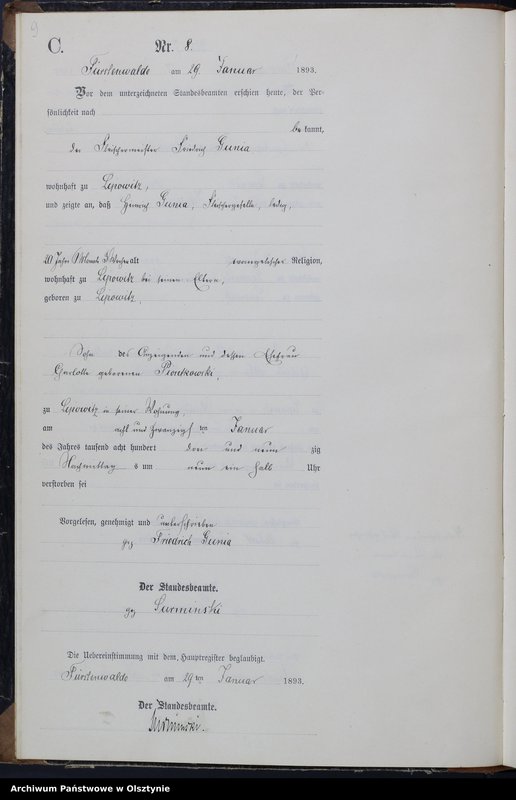 9
C.
Nr. 8.
Fürstenwalde am 29. Januar 1893.
Vor dem unterzeichneten Standesbeamten erschien heute, der Per-
sönlichkeit nach
bekannt,
der Fleischermeister Friedrich Gunia
wohnhaft zu Lepowitz,
und zeigte an, daß Heinrich Gunia, Fleischergeselle, ledig,
20 Jahre Monate Wochen alt evangelischer Religion,
wohnhaft zu Lepowitz bei seinen Eltern,
geboren zu Lepowitz,
Sohn des Anzeigenden und dessen Ehefrau
Charlotte geborenen Piontkowski,
zu Lepowitz in seiner Wohnung,
am acht und zwanzigsten Januar
des Jahres tausend acht hundert drei und neunzig
Nachmittags um neun ein halb Uhr
verstorben sei
Vorgelesen, genehmigt und unterschrieben
gez Friedrich Gunia
Der Standesbeamte.
gez Surminski
Die Uebereinstimmung mit dem Hauptregister beglaubigt.
Fürstenwalde am 29ten Januar 1893.
Der Standesbeamte.
Surminski.
Archiwum Państwowe w Olsztynie